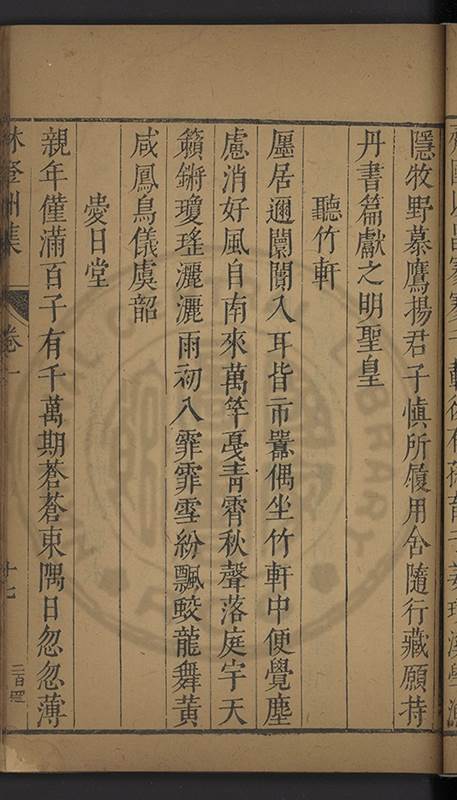 隱牧野慕鷹揚君子慎所履用舍隨行藏願持
丹書篇獻之明聖皇
聽竹軒
廛居邇闤闠入耳皆市囂偶坐竹軒中便覺塵
慮消好風自南來萬竿戛靑霄秋聲落庭宇天
籟鏘瓊瑤灑灑雨初入霏霏雪紛飄蛟龍舞黃
咸鳳鳥儀虞韶
愛日堂
親年僅滿百子有千萬期蒼蒼東隅日忽忽薄
林登州集
卷一
十七